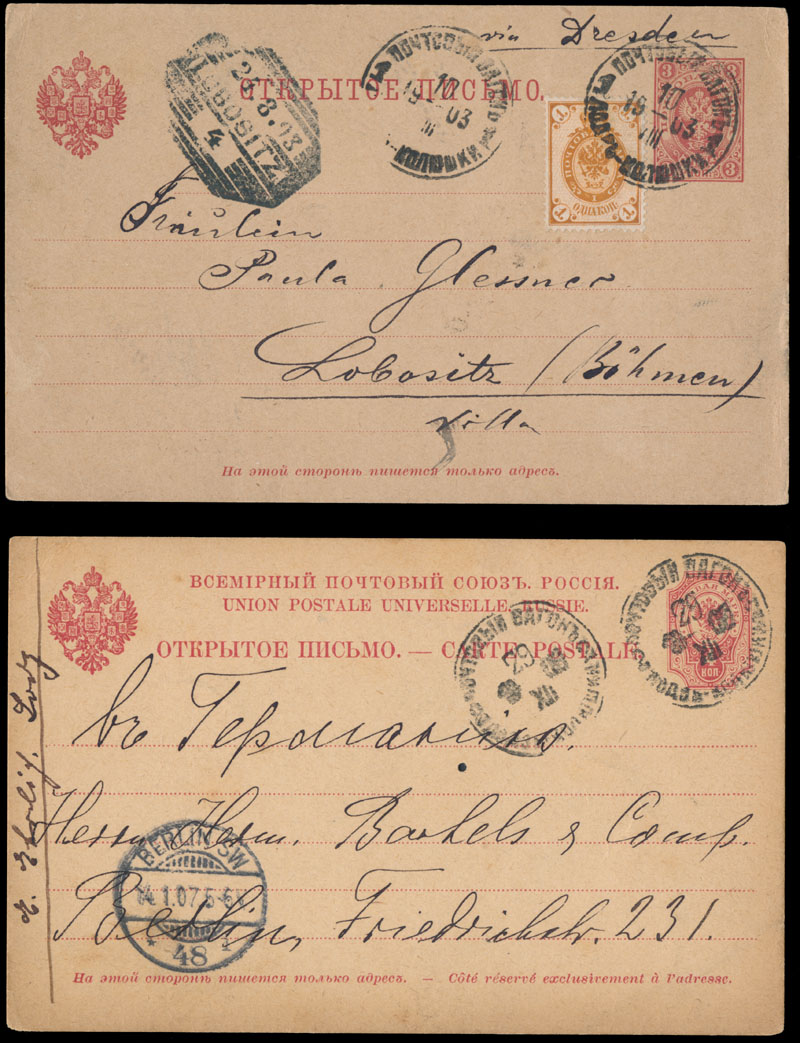 via Dresden
ОТКРЫТОЕ ПИСЬМО.
25.8.03
LOBOSITZ
4
ПОЧТОВЫЙ ВАГОНЪ
10
19 03
VIII
КОЛЮШКИ
ПОЧТОВЫЙ ВАГОНЪ
10
19 03
VIII
КОЛЮШКИ
3
3
3
1
1
ПОЧТОВ
1
ОДНА КОП.
1
1
Fräulein
Paula Glessner
Lobositz (Böhmen)
Villa
На этой сторонѣ пишется только адресъ.
ВСЕМІРНЫЙ ПОЧТОВЫЙ СОЮЗЪ. РОССІЯ.
UNION POSTALE UNIVERSELLE. RUSSIE.
ОТКРЫТОЕ ПИСЬМО. — CARTE POSTALE
ПОЧТОВЫЙ ВАГОНЪ
29
XII
ПОЧТОВЫЙ ВАГОНЪ
29
XII
КОП
въ Германію.
Herrn Herm. Barthels & Comp.
Berlin, Friedrichstr. 231.
BERLIN SW
14.1.07.5-6
48
Ehrlich, Lodz
На этой сторонѣ пишется только адресъ. — Côté réservé exclusivement à l'adresse.